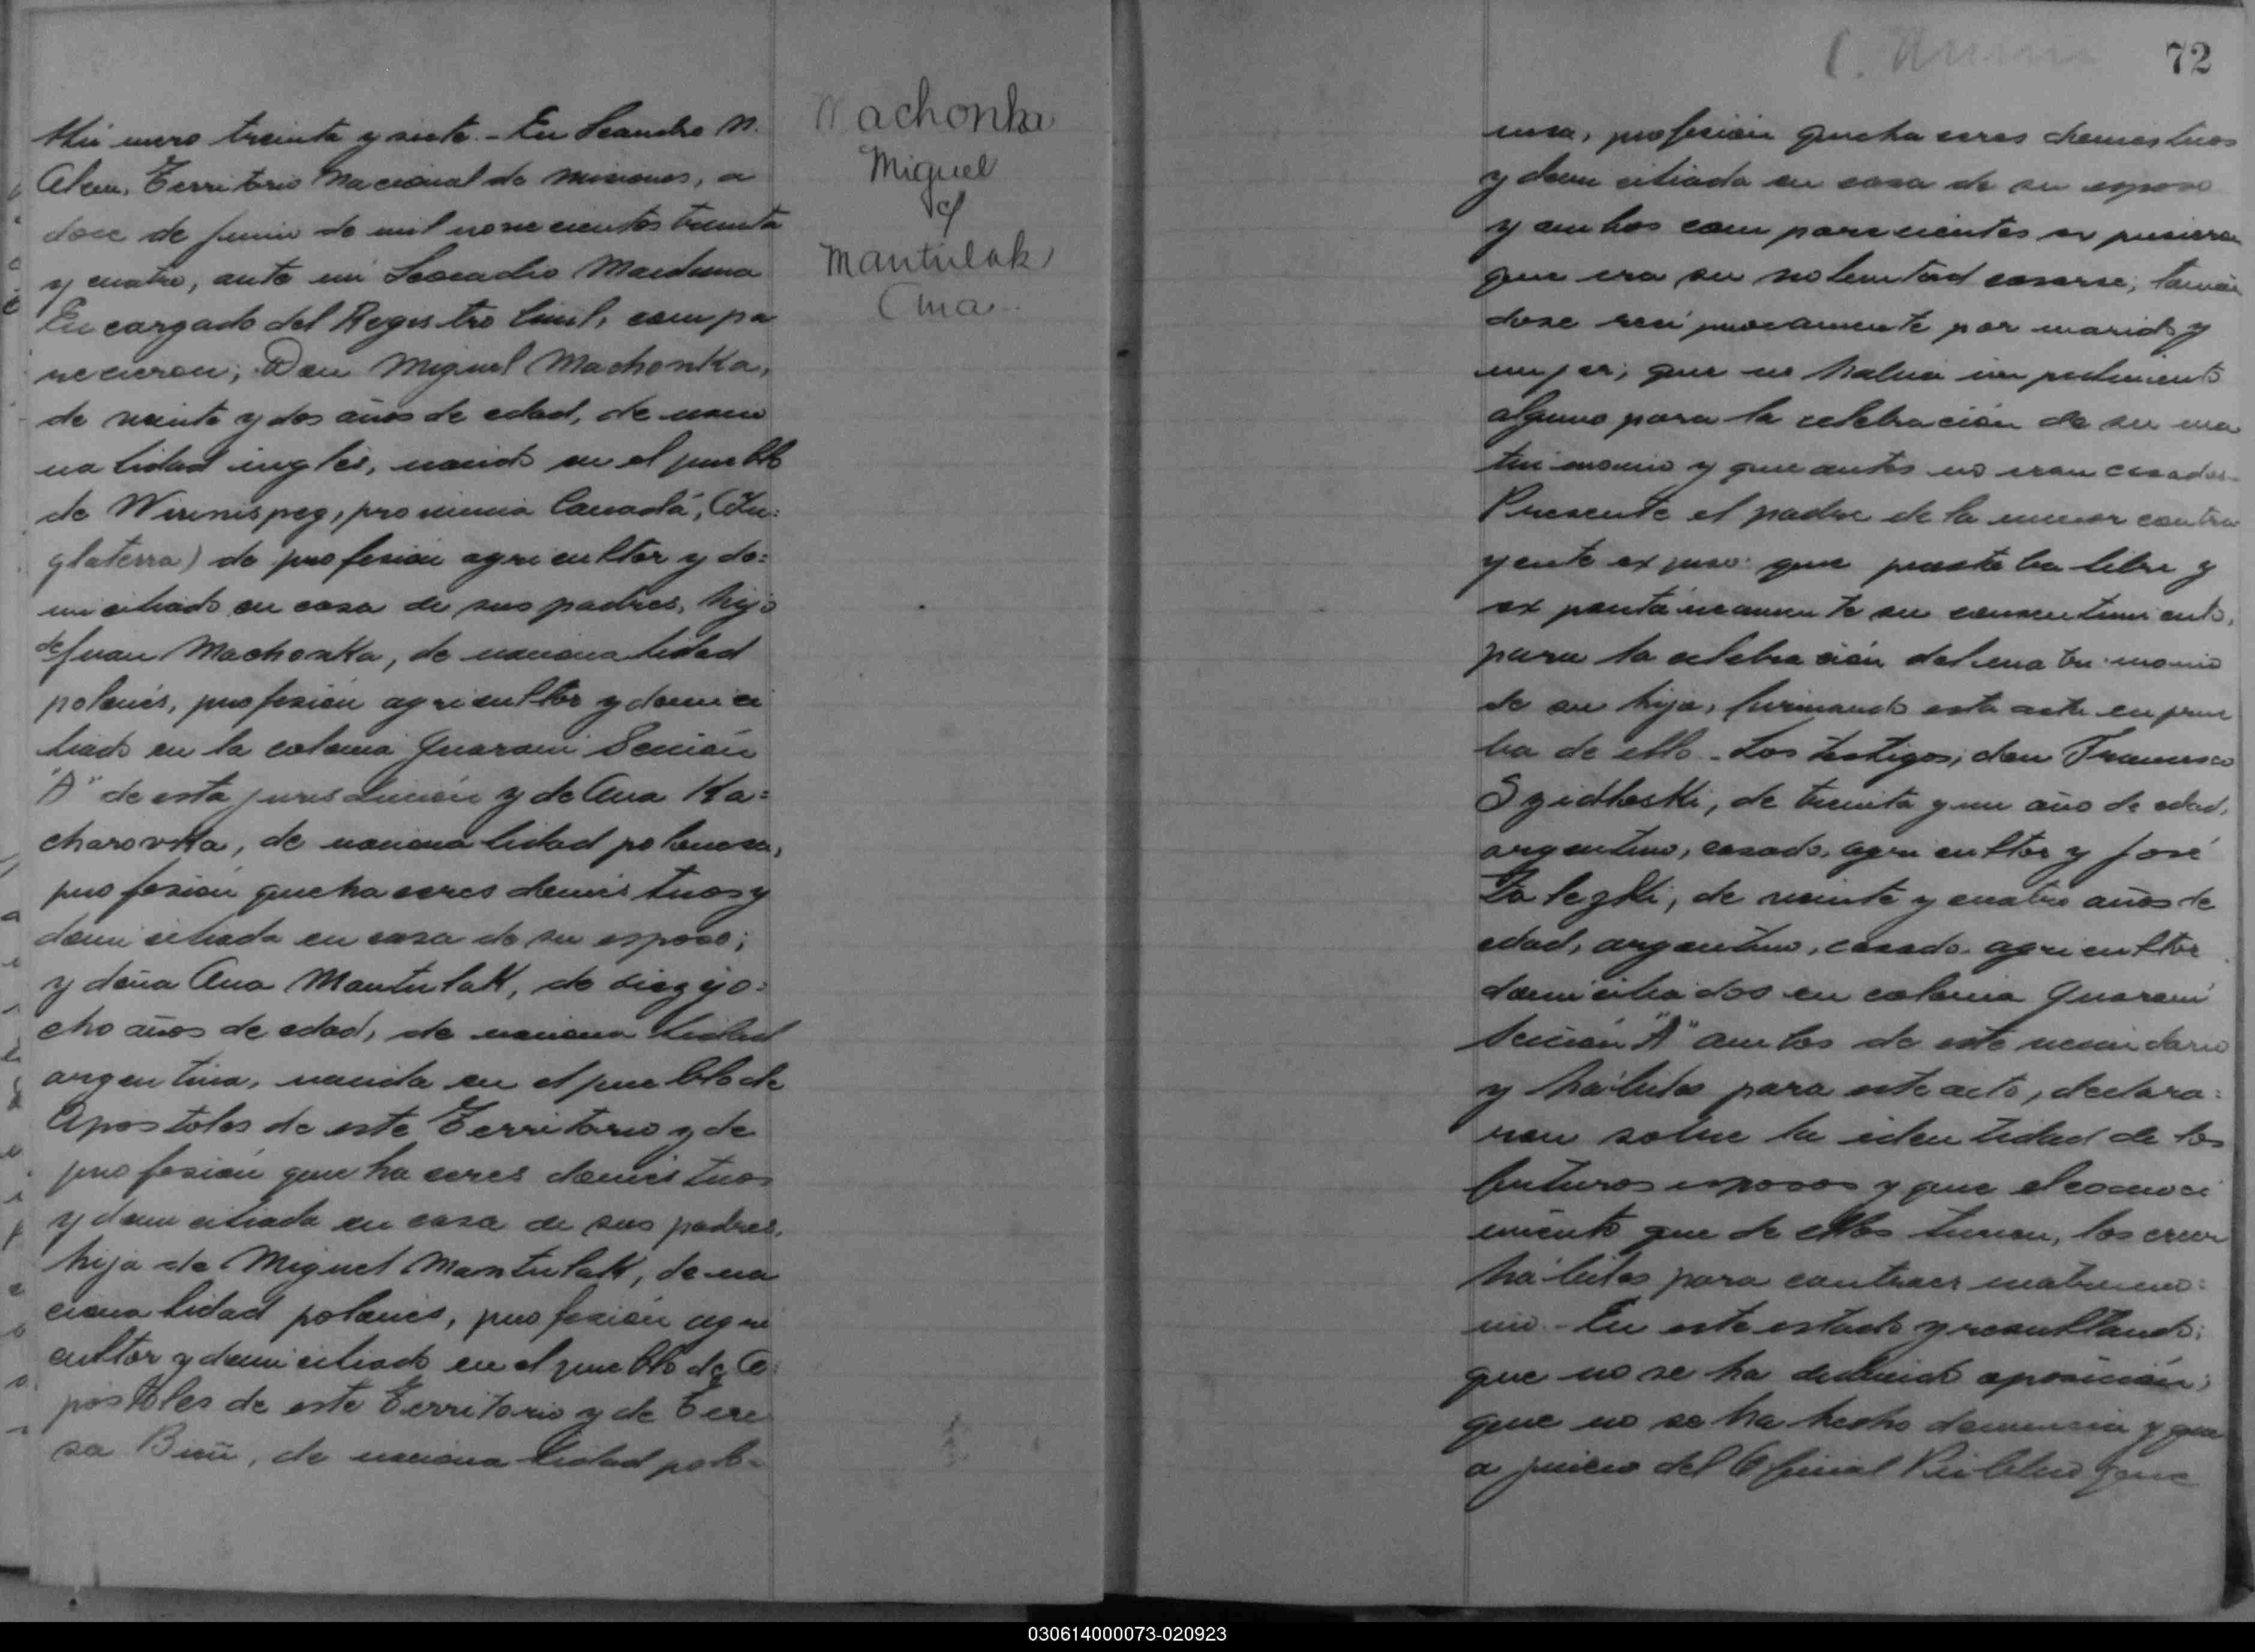 Número treinta y siete.- En Leandro N.
Alem, Territorio Nacional de Misiones, a
doce de Junio de mil novecientos treinta
y cuatro, ante mí Leocadio Maidana
Encargado del Registro Civil, compa
recieron; Don Miguel Machonka,
de veinte y dos años de edad, de nacio
nalidad inglés, nacido en el pueblo
de Winnispeg, provincia Canadá, (In:
glaterra) de profesión agricultor y do:
miciliado en casa de sus padres, hijo
de Juan Machonka, de nacionalidad
polonés, profesión agricultor y domici
liado en la colonia Guaraní Sección
"A" de esta jurisdicción y de Ana Ka=
charovska, de nacionalidad polonesa,
profesión quehaceres domésticos y
domiciliada en casa de su esposo;
y doña Ana Mantulak, de diez y o:
cho años de edad, de nacionalidad
argentina, nacida en el pueblo de
Apóstoles de este Territorio y de
profesión quehaceres domésticos
y domiciliada en casa de sus padres,
hija de Miguel Mantulak, de na
cionalidad polonés, profesión agri
cultor y domiciliado en el pueblo de A:
póstoles de este Territorio y de Tere
sa, de nacionalidad polo=
Machonka
Miguel
y
Mantulak
Ana
72
nesa, profesión quehaceres domésticos
y domiciliada en casa de su esposo
y ambos comparecientes expusieron
que era su voluntad casarse, tomán
dose recíprocamente por marido y
mujer; que no había impedimento
alguno para la celebración de su ma
trimonio y que antes no eran casados.
Presente el padre de la menor contra
yente expuso: que prestaba libre y
expontáneamente su consentimiento,
para la celebración del matrimonio
de su hija, firmando esta acta en prue
ba de ello.- Los testigos; don Francisco
Szidloski, de treinta y un año de edad,
argentino, casado, agricultor y José
Zalezki, de veinte y cuatro años de
edad, argentino, casado, agricultor
domiciliados en colonia Guaraní
Sección "A" ambos de este vecindario
y hábiles para este acto, declara:
ron sobre la identidad de los
futuros esposos y que el conoci
miento que de ellos tienen, los creen
hábiles para contraer matrimo:
nio.- En este estado y resultando;
que no se ha deducido oposición;
que no se ha hecho denuncia y que
a juicio del Oficial Público que
030614000073-020923